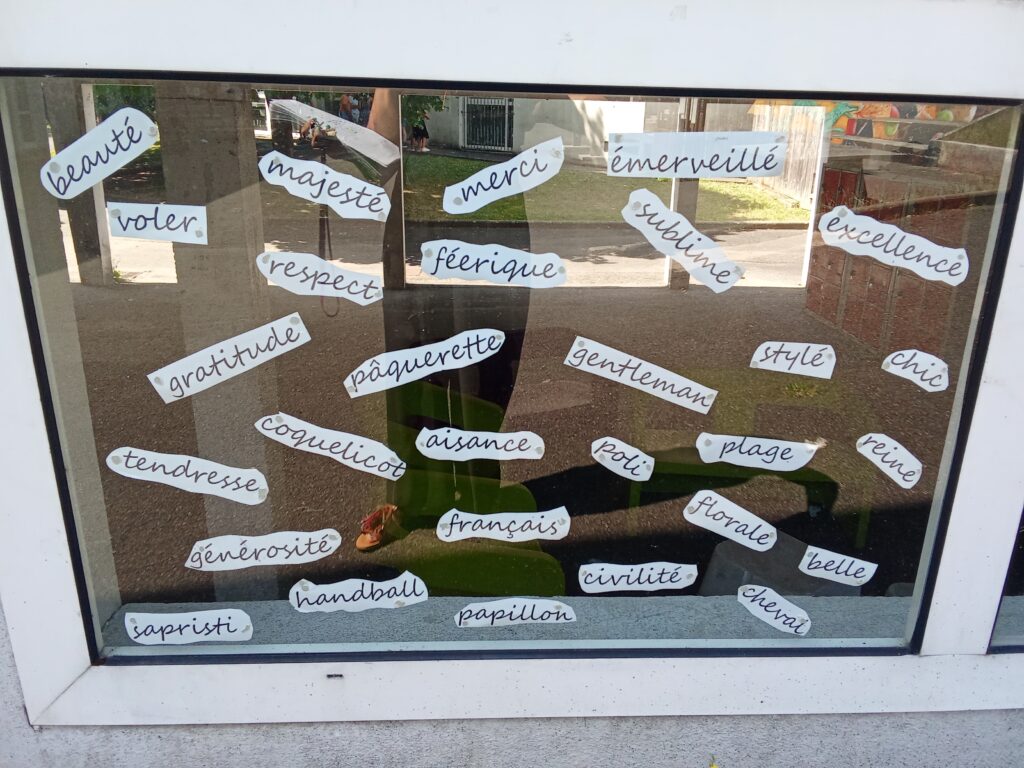 beauté
majesté
merci
émerveillé
voler
sublime
excellence
respect
féerique
gratitude
pâquerette
gentleman
stylé
chic
coquelicot
aisance
poli
plage
reine
tendresse
français
florale
générosité
belle
handball
civilité
sapristi
papillon
cheval